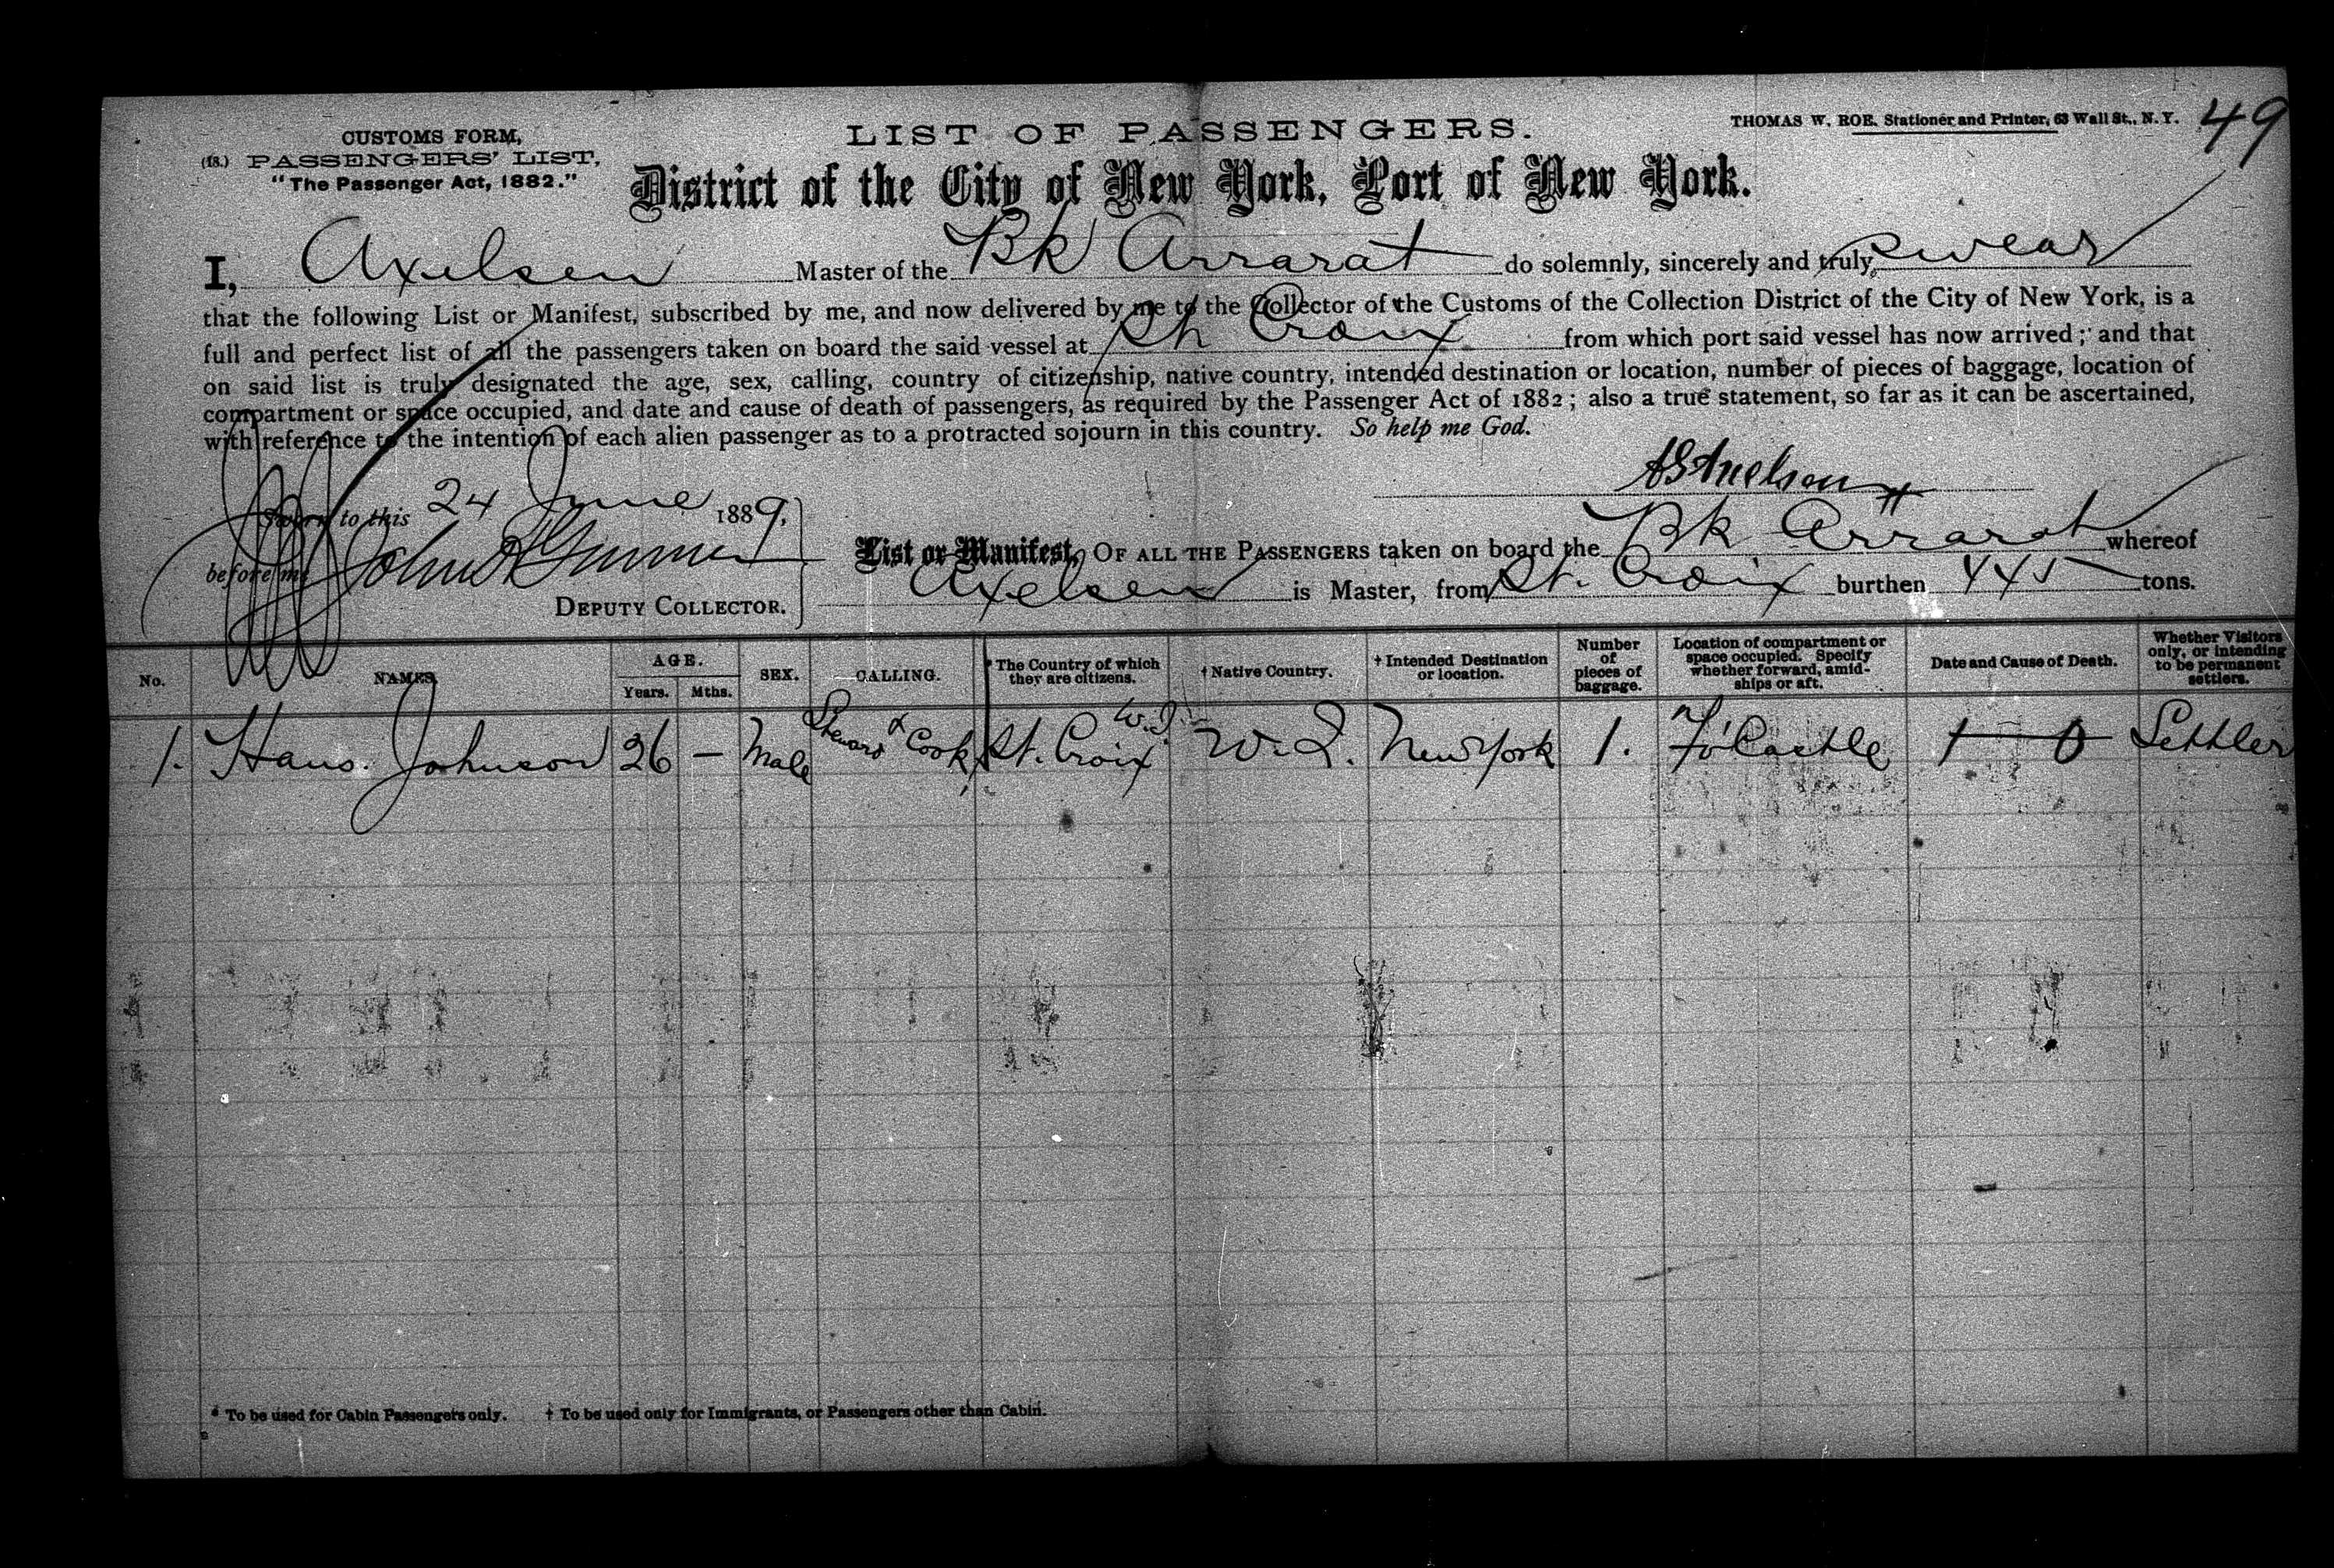 CUSTOMS FORM,
(18.) PASSENGERS' LIST,
"The Passenger Act, 1882."
LIST OF PASSENGERS.
THOMAS W. ROE. Stationer and Printer, 63 Wall St., N. Y.
49
District of the City of New York, Port of New York.
I, Axelsen Master of the Bk Ararat do solemnly, sincerely and truly, swear
that the following List or Manifest, subscribed by me, and now delivered by me to the Collector of the Customs of the Collection District of the City of New York, is a
full and perfect list of all the passengers taken on board the said vessel at St Croix from which port said vessel has now arrived; and that
on said list is truly designated the age, sex, calling, country of citizenship, native country, intended destination or location, number of pieces of baggage, location of
compartment or space occupied, and date and cause of death of passengers, as required by the Passenger Act of 1882; also a true statement, so far as it can be ascertained,
with reference to the intention of each alien passenger as to a protracted sojourn in this country. So help me God.
Sworn to this 24 June 1889,
before me John
DEPUTY COLLECTOR.
List or Manifest, OF ALL THE PASSENGERS taken on board the Bk Ararat whereof
Axelsen is Master, from St. Croix burthen 445 tons.
No. NAMES. AGE. Years. Mths. SEX. CALLING. * The Country of which they are citizens. † Native Country. † Intended Destination or location. Number of pieces of baggage. Location of compartment or space occupied. Specify whether forward, amid-ships or aft. Date and Cause of Death. Whether Visitors only, or intending to be permanent settlers.
1. Hans. Johnson 26 — Male Steward & Cook St. Croix W.I. W.I. New York 1. Fo'Castle Settler
* To be used for Cabin Passengers only. † To be used only for Immigrants, or Passengers other than Cabin.